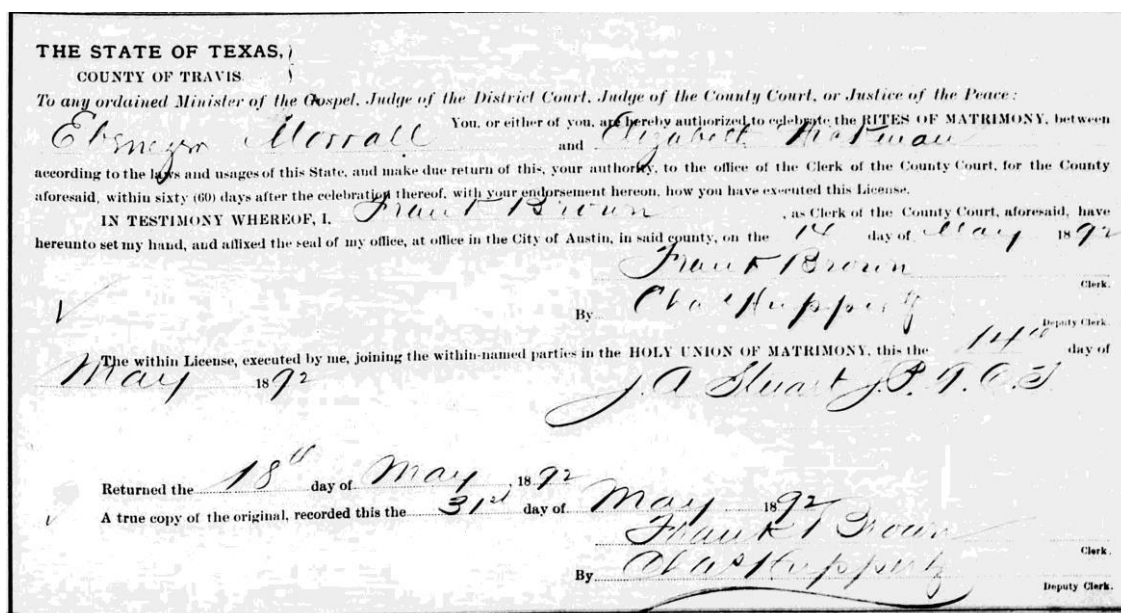 THE STATE OF TEXAS,
COUNTY OF TRAVIS
To any ordained Minister of the Gospel, Judge of the District Court, Judge of the County Court, or Justice of the Peace:
You, or either of you, are hereby authorized to celebrate the RITES OF MATRIMONY, between
Ebenezer Morrall and Elizabeth
according to the laws and usages of this State, and make due return of this, your authority, to the office of the Clerk of the County Court, for the County
aforesaid, within sixty (60) days after the celebration thereof, with your endorsement hereon, how you have executed this License.
IN TESTIMONY WHEREOF, I, Frank Brown, as Clerk of the County Court, aforesaid, have
hereunto set my hand, and affixed the seal of my office, at office in the City of Austin, in said county, on the 14 day of May 1892
Frank Brown
Clerk.
By Chas Huppertz
Deputy Clerk.
The within License, executed by me, joining the within-named parties in the HOLY UNION OF MATRIMONY, this the 14th day of
May 1892
J. A. Stuart J. P. T. C. T.
Returned the 18th day of May, 1892
A true copy of the original, recorded this the 31st day of May 1892
Frank Brown
Clerk.
By Chas Huppertz
Deputy Clerk.